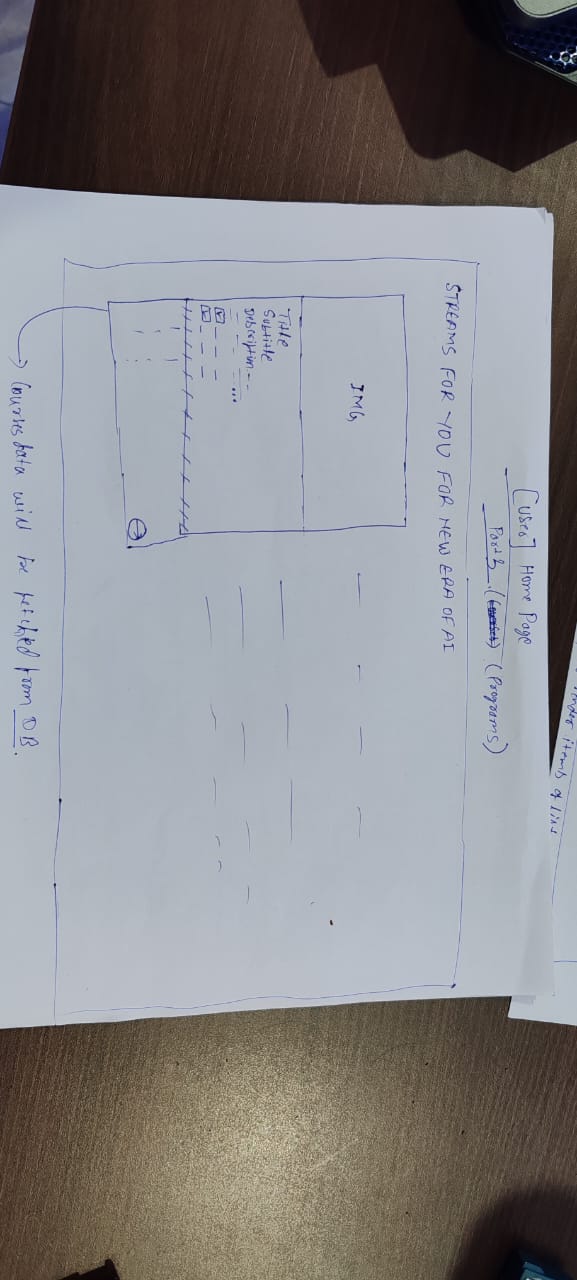 render items of list
[User] Home Page
Part 3. (Programs)
STREAMS FOR YOU FOR NEW ERA OF AI
IMG
Title
Subtitle
Description
Courses data will be fetched from DB.